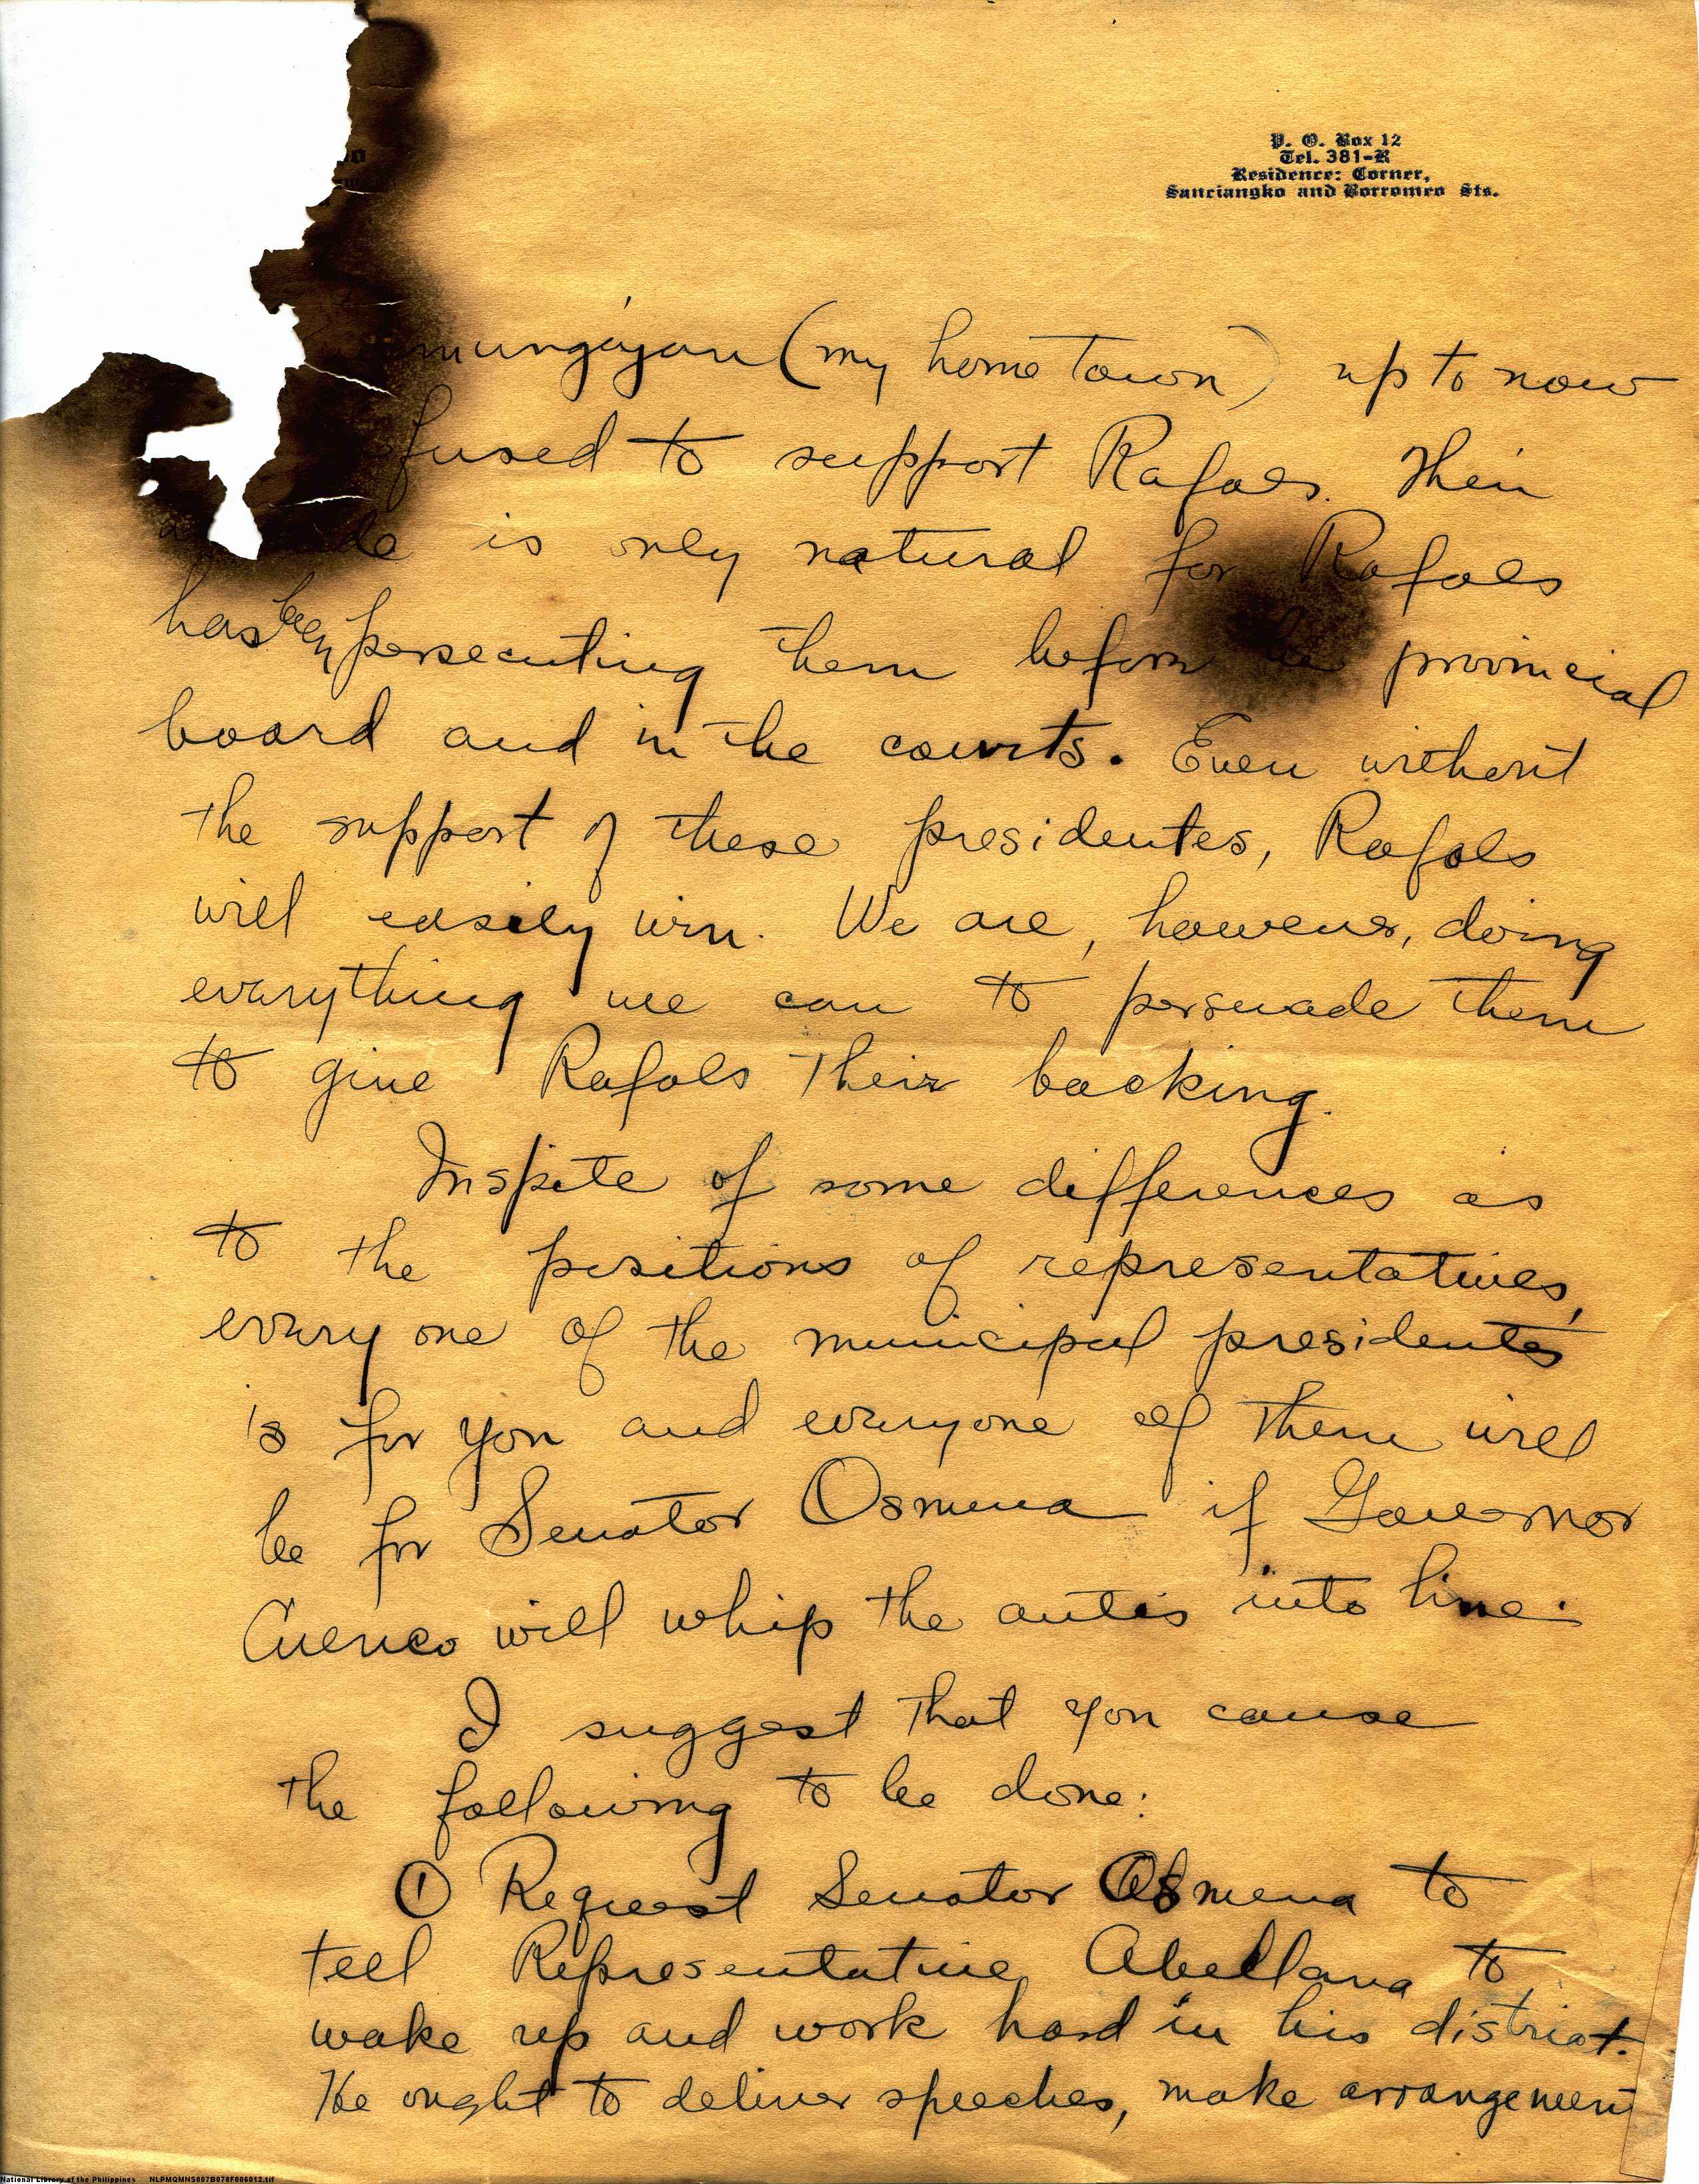 P. O. Box 12
Tel. 381-R
Residence: Corner,
Sanciangko and Borromeo Sts.
mungajan (my home town) up to now
fused to support Rafols. Their
is only natural for Rafols
has been persecuting them before the provincial
board and in the courts. Even without
the support of these presidentes, Rafols
will easily win. We are, however, doing
everything we can to persuade them
to give Rafols their backing.
Inspite of some differences as
to the positions of representatives,
every one of the municipal presidentes
is for you and everyone of them will
be for Senator Osmena if Governor
Cuenco will whip the antis into line.
I suggest that you cause
the following to be done:
① Request Senator Osmena to
tell Representative Abellana to
wake up and work hard in his district.
He ought to deliver speeches, make arrangement
National Library of the Philippines NLPMQMNS007B078F006012.tif